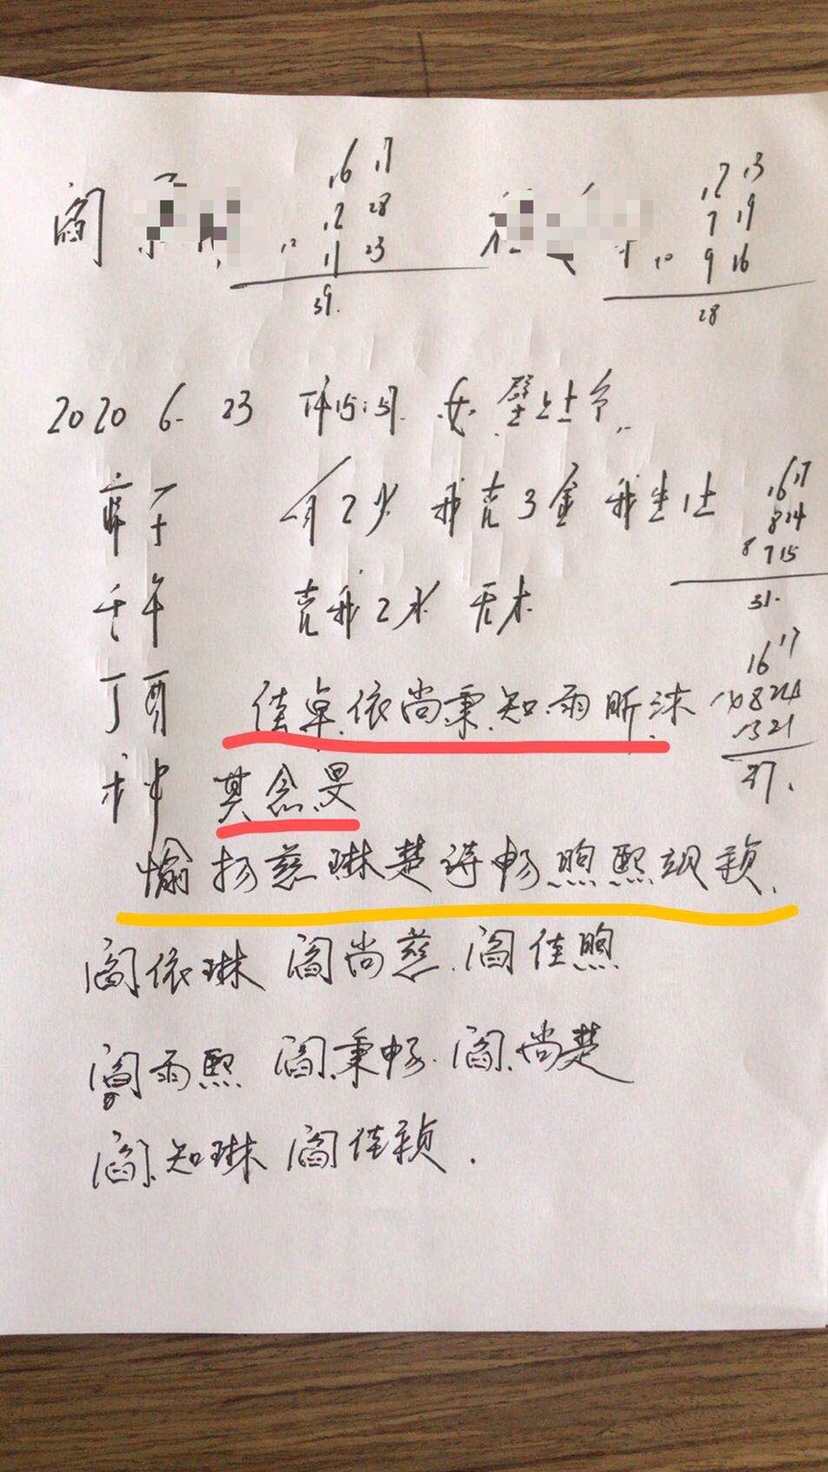 阎
16 17
12 28
12 11 23
39.
12 13
7 19
10 9 16
28
2020 6. 23 下午15:57. 女. 壁上土命.
庚子 有2火 我克3金 我生1土
壬午 克我2水 无木.
16 17
8 24
8 7 15
31.
丁酉 佳卓.依尚秉.知雨昕.沐
16 17
8 24
13 21
37.
其念旻
愉扬慈琳楚诗畅煦熙飒颖.
阎依琳 阎尚慈. 阎佳煦
阎雨熙 阎秉畅. 阎尚楚
阎知琳 阎佳颖.